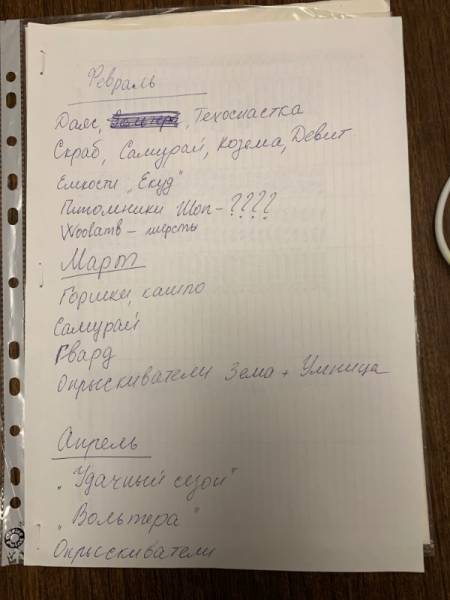 Февраль
Даяс, Вольтера, Техоснастка
Скраб, Самурай, Козема, Девит
Емкости "Екуд"
Питомники Шоп - ????
Woolamb - шерсть
Март
Горшки, кашпо
Самурай
Гвард
Опрыскиватели Зема + Умница
Апрель
"Удачный сезон"
"Вольтера"
Опрысскиватели